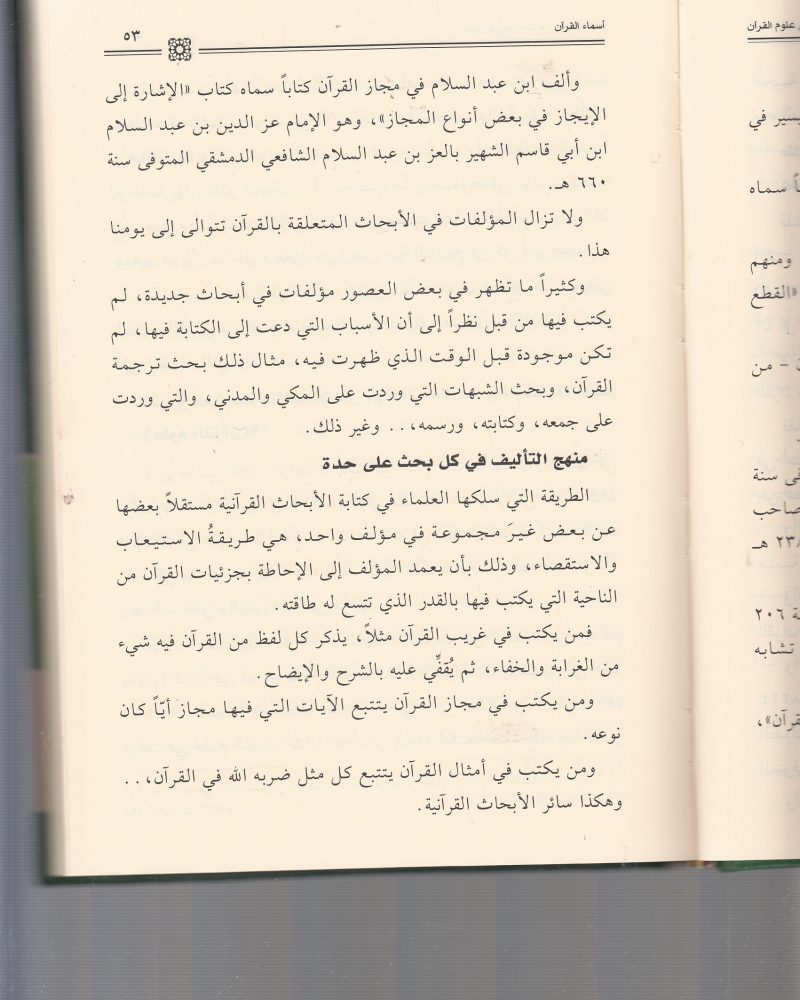 أسماء القرآن
٥٣
وألف ابن عبد السلام في مجاز القرآن كتاباً سماه كتاب «الإشارة إلى
الإيجاز في بعض أنواع المجاز»، وهو الإمام عز الدين بن عبد السلام
ابن أبي قاسم الشهير بالعز بن عبد السلام الشافعي الدمشقي المتوفى سنة
٦٦٠ هـ.
ولا تزال المؤلفات في الأبحاث المتعلقة بالقرآن تتوالى إلى يومنا
هذا.
وكثيراً ما تظهر في بعض العصور مؤلفات في أبحاث جديدة، لم
يكتب فيها من قبل نظراً إلى أن الأسباب التي دعت إلى الكتابة فيها، لم
تكن موجودة قبل الوقت الذي ظهرت فيه، مثال ذلك بحث ترجمة
القرآن، وبحث الشبهات التي وردت على المكي والمدني، والتي وردت
على جمعه، وكتابته، ورسمه،.. وغير ذلك.
منهج التأليف في كل بحث على حدة
الطريقة التي سلكها العلماء في كتابة الأبحاث القرآنية مستقلاً بعضها
عن بعض غيرَ مجموعة في مؤلف واحد، هي طريقةُ الاستيعاب
والاستقصاء، وذلك بأن يعمد المؤلف إلى الإحاطة بجزئيات القرآن من
الناحية التي يكتب فيها بالقدر الذي تتسع له طاقته.
فمن يكتب في غريب القرآن مثلاً، يذكر كل لفظ من القرآن فيه شيء
من الغرابة والخفاء، ثم يُقفِّي عليه بالشرح والإيضاح.
ومن يكتب في مجاز القرآن يتتبع الآيات التي فيها مجاز أيّاً كان
نوعه.
ومن يكتب في أمثال القرآن يتتبع كل مثل ضربه الله في القرآن،..
وهكذا سائر الأبحاث القرآنية.
علوم القرآن
في
سماه
ومنهم
«القطع
- من
سنة
هـ
٢٠٦
تشابه